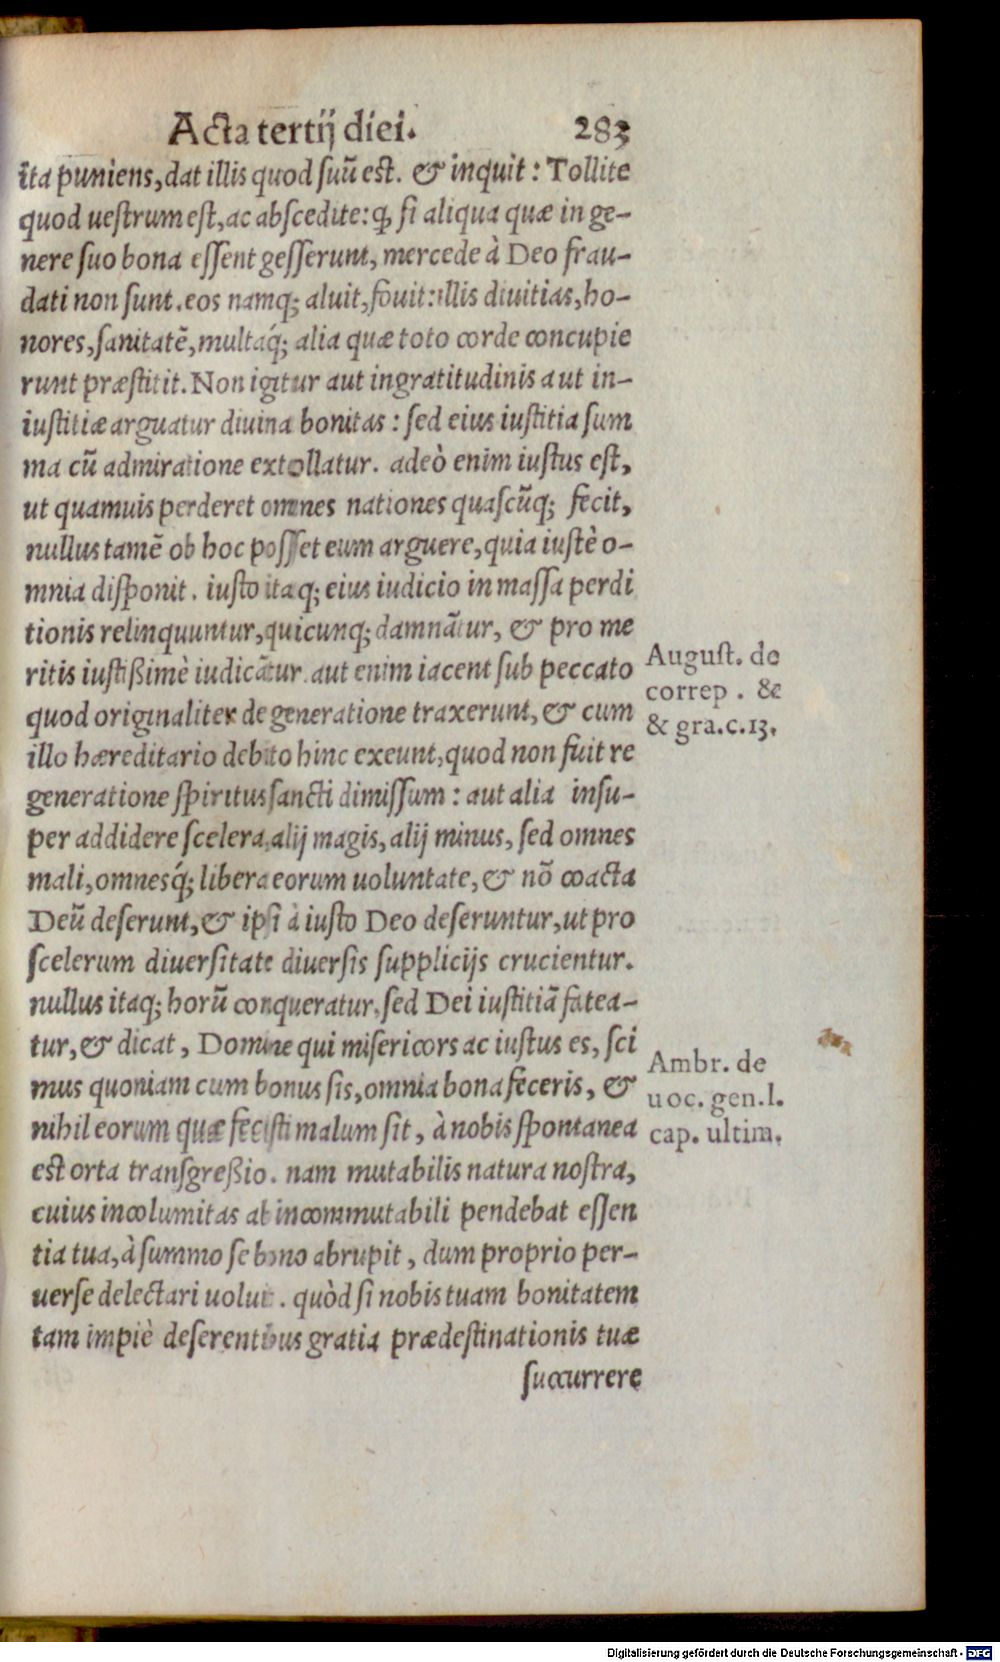 Acta tertij diei. 283
ita puniens, dat illis quod suũ est. & inquit: Tollite
quod uestrum est, ac abscedite: ꝙ si aliqua quæ in ge-
nere suo bona essent gesserunt, mercede à Deo frau-
dati non sunt. eos namq; aluit, fouit: illis diuitias, ho-
nores, sanitatẽ, multaq́; alia quæ toto corde concupie
runt præstitit. Non igitur aut ingratitudinis aut in-
iustitiæ arguatur diuina bonitas: sed eius iustitia sum
ma cũ admiratione extollatur. adeò enim iustus est,
ut quamuis perderet omnes nationes quascũq; fecit,
nullus tamẽ ob hoc posset eum arguere, quia iustè o-
mnia disponit. iusto itaq; eius iudicio in massa perdi
tionis relinquuntur, quicunq; damnãtur, & pro me
ritis iustißimè iudicãtur. aut enim iacent sub peccato
quod originaliter de generatione traxerunt, & cum
illo hæreditario debito hinc exeunt, quod non fuit re
generatione spiritus sancti dimissum: aut alia insu-
per addidere scelera, alij magis, alij minus, sed omnes
mali, omnesq́; libera eorum uoluntate, & nõ coacta
Deũ deserunt, & ipsi à iusto Deo deseruntur, ut pro
scelerum diuersitate diuersis supplicijs crucientur.
nullus itaq; horũ conqueratur, sed Dei iustitiã fatea-
tur, & dicat, Domine qui misericors ac iustus es, sci
mus quoniam cum bonus sis, omnia bona feceris, &
nihil eorum quæ fecisti malum sit, à nobis spontanea
est orta transgreßio. nam mutabilis natura nostra,
cuius incolumitas ab incommutabili pendebat essen
tia tua, à summo se bono abrupit, dum proprio per-
uerse delectari uoluit. quòd si nobis tuam bonitatem
tam impiè deserentibus gratia prædestinationis tuæ
succurrere
August. de
correp. &
& gra.c.13.
Ambr. de
uoc. gen.l.
cap. ultim.
Digitalisierung gefördert durch die Deutsche Forschungsgemeinschaft - DFG